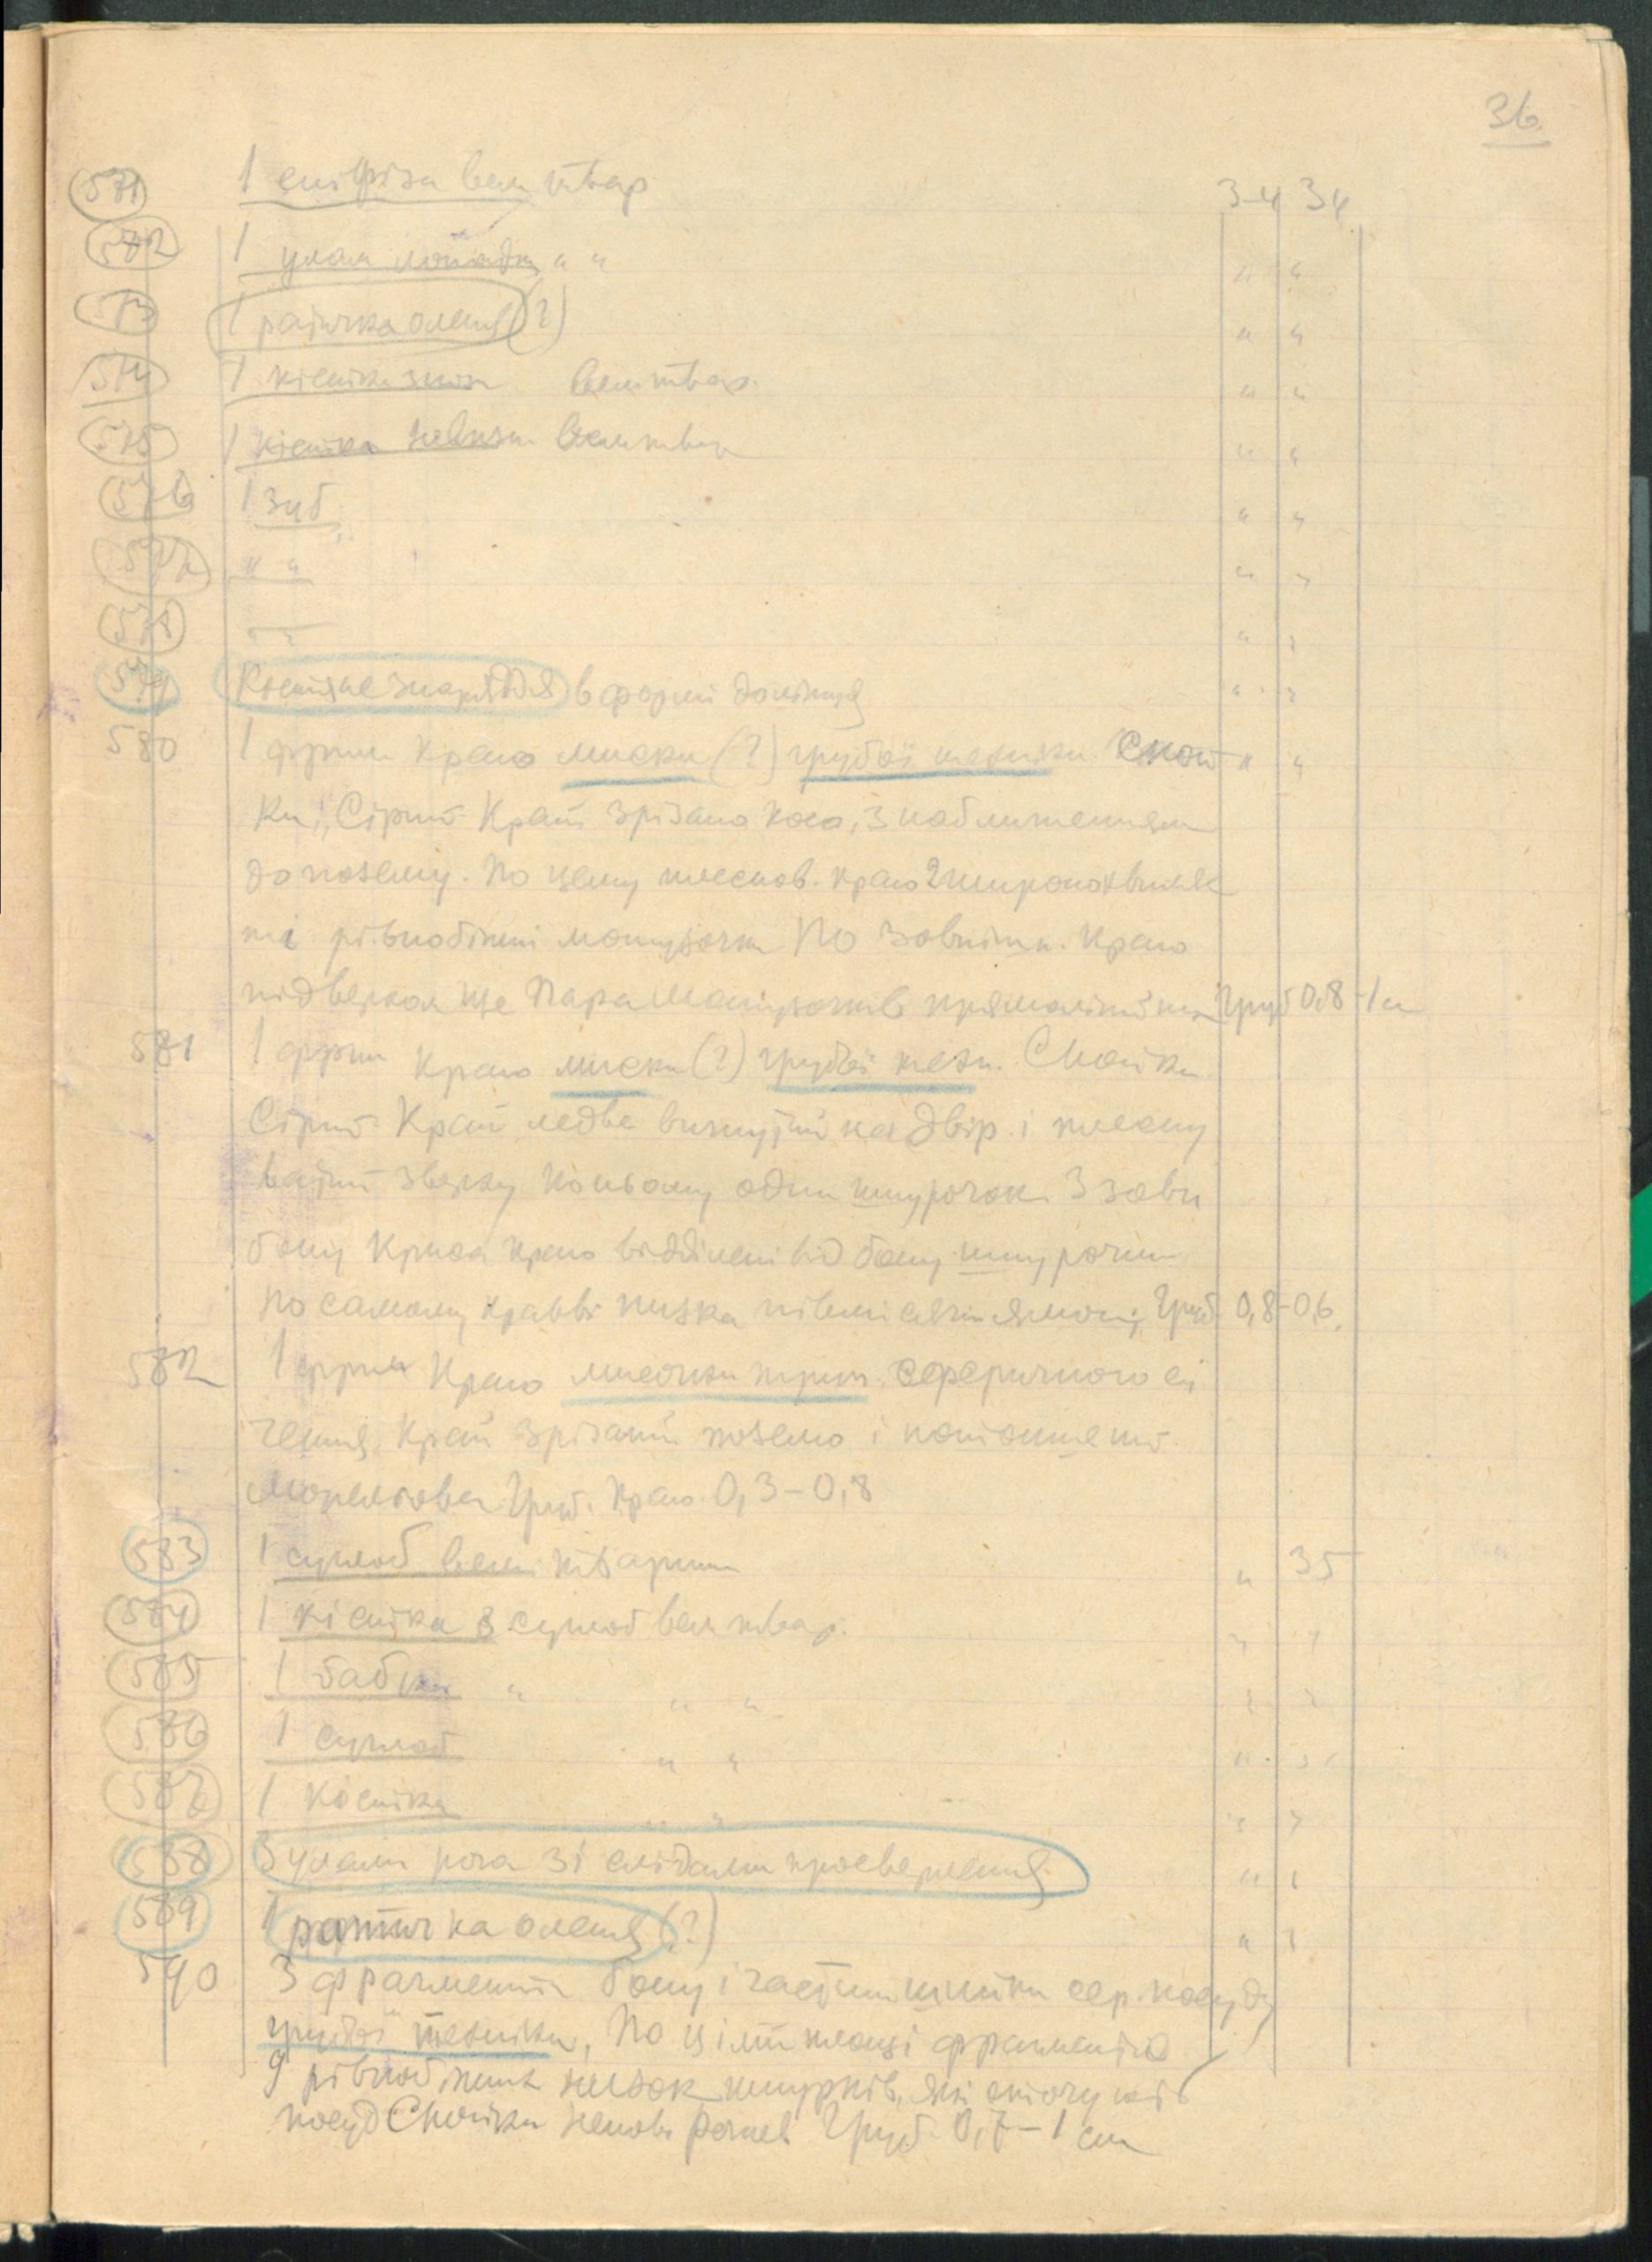 36.
571 1 епіфіза вел твар 3-4 34
572 1 улам лопатки " " " "
573 1 ратичка оленя (?) " "
574 1 кістка вел твар. " "
575 1 кістка " "
576 1 зуб " "
577 " " " "
578 " " " "
579 Костяне знаряддя в формі долітця " "
580 1 фрагм краю миски (?) грубої техніки. " "
Сірий Край зрізано косо, з наближенням
до позему. По цему край 2
рівнобіжні мотузочки По зовнішн. краю
ще пара мотузочків Груб 0,8-1 см
581 1 фрагм краю миски (?) грубої техн.
Сірий Край ледве вигнутий на двір і плеску
ватий зверху По ньому один шнурочок. З зовн
боку краю відділені від боку шнурочком
по самому краєві низка ямочок. Груб. 0,8-0,6.
582 1 фрагм краю мисочки трип. сферичного сі
чення, край зрізаний поземо і потоншений.
Груб. краю. 0,3-0,8
583 1 суглоб вели тварини " 35
584 1 кістка з суглоб вел твар. " "
585 1 бабка " " " " "
586 1 суглоб " " " "
587 1 кістка " " " "
588 3 улами рога зі слідами просверлення. " "
589 1 ратичка оленя (?) " "
590 3 фрагменти боку і частини шийки сер. посуду
грубої техніки, По цілій площі фрагментів
9 рівнобіжних низок шнурків, які оточують
посуд Груб. 0,7-1 см